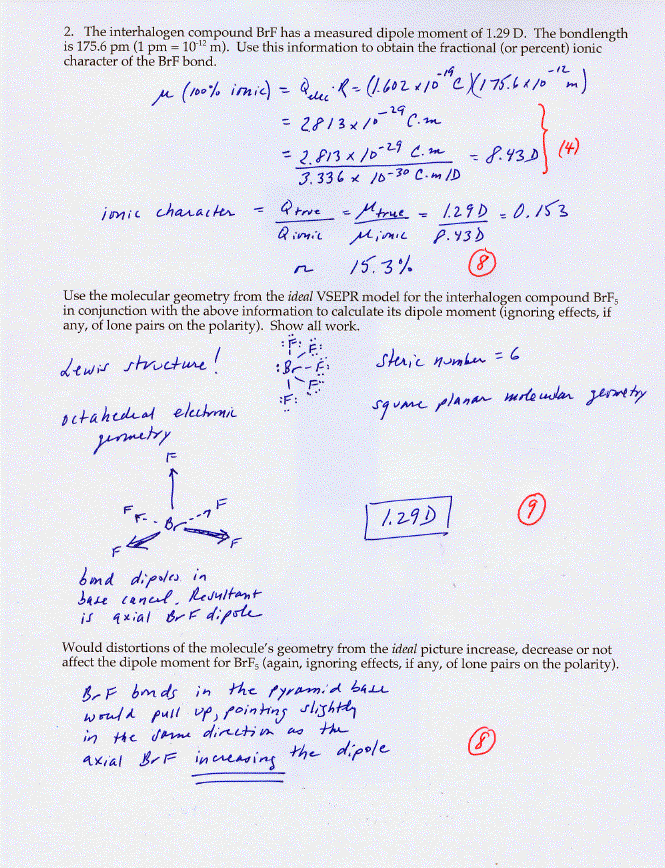 2. The interhalogen compound BrF has a measured dipole moment of 1.29 D. The bondlength
is 175.6 pm (1 pm = 10⁻¹² m). Use this information to obtain the fractional (or percent) ionic
character of the BrF bond.
μ (100% ionic) = Q_elec · R = (1.602 x 10⁻¹⁹ C)(175.6 x 10⁻¹² m)
= 2813 x 10⁻²⁹ C.m
= 2.813 x 10⁻²⁹ C.m = 8.43 D (4)
3.336 x 10⁻³⁰ C.m/D
ionic character = Q true = μ true = 1.29 D = 0.153
Q ionic μ ionic 8.43 D
or 15.3% (8)
Use the molecular geometry from the ideal VSEPR model for the interhalogen compound BrF₅
in conjunction with the above information to calculate its dipole moment (ignoring effects, if
any, of lone pairs on the polarity). Show all work.
Lewis structure!
:F: F:
:Br-F:
F:
:F:
steric number = 6
square planar molecular geometry
octahedral electronic
geometry
F
F F
F Br F
F F
1.29 D (9)
bond dipoles in
base cancel. Resultant
is axial BrF dipole
Would distortions of the molecule's geometry from the ideal picture increase, decrease or not
affect the dipole moment for BrF₅ (again, ignoring effects, if any, of lone pairs on the polarity).
BrF bonds in the pyramid base
would pull up, pointing slightly
in the same direction as the
axial BrF increasing the dipole
(8)